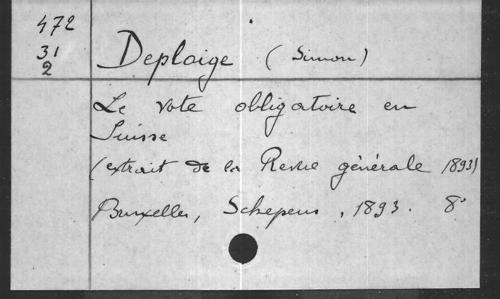 472
31
2
Deploige (Simon)
Le vote obligatoire en
Suisse
(extrait de la Revue générale 1893)
Bruxelles, Schepens, 1893. 8°